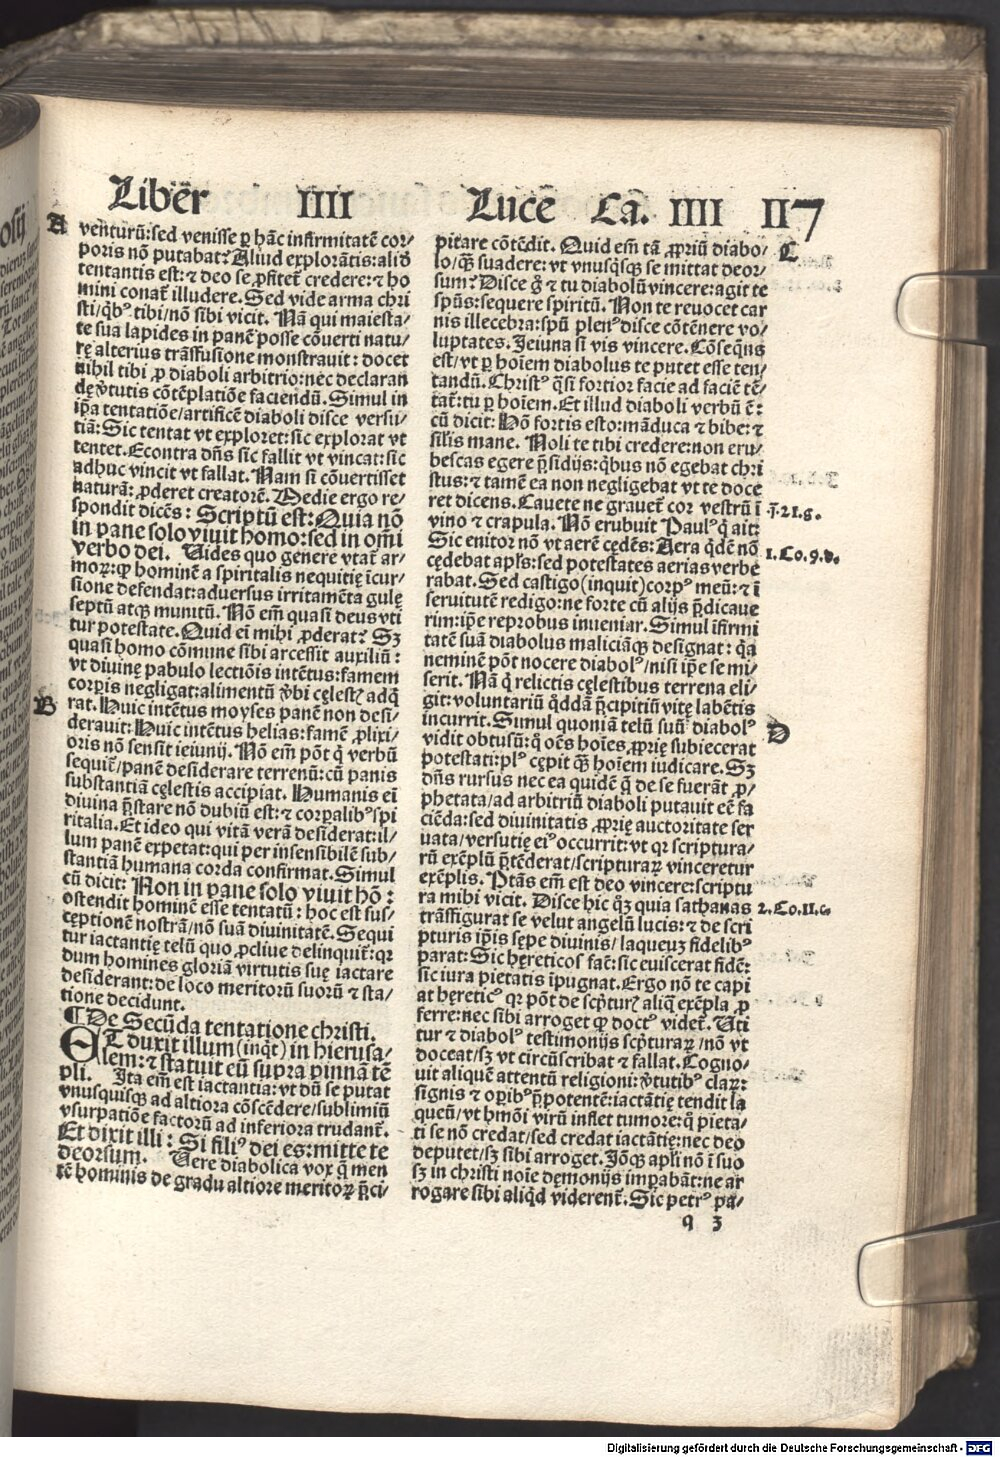 Liber IIII Luce Ca. IIII 117
A
venturū:sed venisse ꝑ hāc infirmitatē cor/
poris nō putabat? Aliud explorātis:aliđ
tentantis est:⁊ deo se ꝓfitet̄ credere:⁊ ho
mini conat̄ illudere. Sed vide arma chri
sti/qbꝰ tibi/nō sibi vicit. Nā qui maiesta/
te sua lapides in panē posse cōuerti natu/
rę alterius trāsfusione monstrauit: docet
nihil tibi ꝓ diaboli arbitrio:nec declaran
dę v̄tutis cōtēplatiōe faciendū. Simul in
ip̄a tentatiōe/artificē diaboli disce versu/
tiā: Sic tentat vt exploret:sic explorat vt
tentet. Econtra dn̄s sic fallit vt vincat:sic
adhuc vincit vt fallat. Nam si cōuertisset
naturā: ꝓderet creatorē. Medie ergo re/
spondit dicēs: Scriptū est: Quia nō
in pane solo viuit homo:sed in om̄i
verbo dei. Uides quo genere vtat̄ ar/
moꝝ:ꝙ hominē a spiritalis nequitię icur/
sione defendat:aduersus irritamēta gulę
septū atqꝫ munitū. Nō em̄ quasi deus vti
tur potestate. Quid ei mihi ꝓderat? Sꝫ
quasi homo cōmune sibi arcessit auxiliū:
vt diuinę pabulo lectiōis intētus:famem
corꝑis negligat:alimentū v̄bi cęlestꝭ adq̄
B
rat. Huic intētus moyses panē non desi/
derauit: Huic intētus helias:famē ꝓlixi/
oris nō sensit ieiunij. Nō em̄ pōt q̇ verbū
sequit̄/panē desiderare terrenū:cū panis
substantiā cęlestis accipiat. Humanis ei
diuina p̄stare nō dubiū est:⁊ corꝑalibꝰ spi
ritalia. Et ideo qui vitā verā desiderat:il/
lum panē expetat:qui per insensibilē sub/
stantiā humana corda confirmat. Simul
cū dicit: Non in pane solo viuit hō:
ostendit hominē esse tentatū: hoc est sus/
ceptionē nostrā/nō suā diuinitatē. Sequi
tur iactantię telū quo ꝓcliue delinquit̄:qꝛ
dum homines gloriā virtutis suę iactare
desiderant:de loco meritorū suorū ⁊ sta/
tione decidunt.
¶ De Secūda tentatione christi.
ET duxit illum (inq̇t) in hierusa/
lem:⁊ statuit eū supra pinnā tē
pli. Ita em̄ est iactantia:vt dū se putat
vnusquisqꝫ ad altiora cōscēdere/sublimiū
vsurpatiōe factorū ad inferiora trudant̄.
Et dixit illi: Si filiꝰ dei es:mitte te
deorsum. Uere diabolica vox q̄ men
tē hominis de gradu altiore meritoꝝ p̄ci/
pitare cōtēdit. Quid em̄ tā ꝓpriū diabo/
C
lo/qꝫ suadere:vt vnusqsqꝫ se mittat deor/
sum? Disce g̊ ⁊ tu diabolū vincere:agit te
sp̄us:sequere spiritū. Non te reuocet car
nis illecebra:sp̄u plenꝰ disce cōtēnere vo/
luptates. Ieiuna si vis vincere. Cōseq̄ns
est/vt ꝑ hoīem diabolus te putet esse ten/
tandū. Christꝰ q̄si fortior facie ad faciē tē/
tat̄:tu ꝑ hoīem. Et illud diaboli verbū ē:
cū dicit: Hō fortis esto:māduca ⁊ bibe:⁊
sil̄is mane. Noli te tibi credere:non eru/
bescas egere p̄sidijs:qbus nō egebat chri
stus:⁊ tamē ea non negligebat vt te doce
ret dicens. Cauete ne grauet̄ cor vestrū ī
J.21.g.
vino ⁊ crapula. Nō erubuit Paulꝰ q̇ ait:
Sic enitor nō vt aerē cędēs: Aera q̇dē nō
1.Co.9.d.
cędebat apl̄s:sed potestates aerias verbe
rabat. Sed castigo (inquit) corpꝰ meū:⁊ ī
seruitutē redigo:ne forte cū alijs p̄dicaue
rim:ip̄e reprobus inueniar. Simul ifirmi
tatē suā diabolus maliciāqꝫ designat: q̇a
neminē pōt nocere diabolꝰ/nisi ip̄e se mi/
serit. Nā q̇ relictis cęlestibus terrena eli/
git:voluntariū q̇ddā p̄cipitiū vitę labētis
incurrit. Simul quoniā telū suū diabolꝰ
D
vidit obtusū:q̇ oēs hoīes ꝓprię subiecerat
potestati:plꝰ cępit qꝫ hoīem iudicare. Sꝫ
dn̄s rursus nec ea quidē q̄ de se fuerāt ꝓ/
phetata/ad arbitriū diaboli putauit eē fa
ciēda:sed diuinitatis ꝓprię auctoritate ser
uata/versutię eiꝰ occurrit:vt qꝛ scriptura/
rū exēplū p̄tēderat/scripturaꝝ vinceretur
exēplis. Ptās em̄ est deo vincere:scriptu
ra mihi vicit. Disce hic qꝫ quia sathanas
2.Co.11.c.
trāsfigurat se velut angelū lucis:⁊ de scri
pturis ip̄is sępe diuinis/laqueuꝫ fidelibꝰ
parat: Sic hęreticos facit:sic euiscerat fidē:
sic iura pietatis īpugnat. Ergo nō te capi
at hęreticꝰ qꝛ pōt de scpturꝭ aliq̄ exēpla ꝓ
ferre:nec sibi arroget ꝙ doctꝰ videt̄. Uti
tur ⁊ diabolꝰ testimonijs scpturaꝝ/nō vt
doceat/sꝫ vt circūscribat ⁊ fallat. Cogno/
uit aliquē attentū religioni:v̄tutibꝰ claꝝ:
signis ⁊ oꝑibꝰ p̄potentē:iactātię tendit la
queū/vt hm̄ōi virū inflet tumore:q̇ pieta/
ti se nō credat/sed credat iactātię:nec deo
deputet/sꝫ sibi arroget. Iōqꝫ apl̄i nō ī suo
sꝫ in christi noīe dęmonijs imꝑabāt:ne ar
rogare sibi aliq̇d viderent̄. Sic petrꝰ pa/
q 3
Digitalisierung gefördert durch die Deutsche Forschungsgemeinschaft - DFG